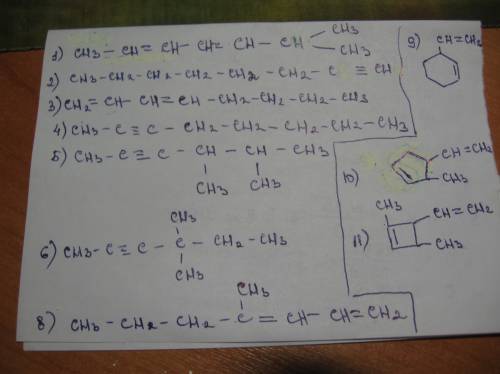 CH3
1) CH3 - CH = CH - CH = CH - CH
CH3
2) CH3 - CH2 - CH2 - CH2 - CH2 - CH2 - C ≡ CH
3) CH2 = CH - CH = CH - CH2 - CH2 - CH2 - CH3
4) CH3 - C ≡ C - CH2 - CH2 - CH2 - CH2 - CH3
5) CH3 - C ≡ C - CH - CH - CH3
CH3 CH3
CH3
6) CH3 - C ≡ C - C - CH2 - CH3
CH3
CH3
8) CH3 - CH2 - CH2 - C = CH - CH = CH2
9) CH=CH2
10) CH=CH2
CH3
CH3
CH=CH2
11) CH3